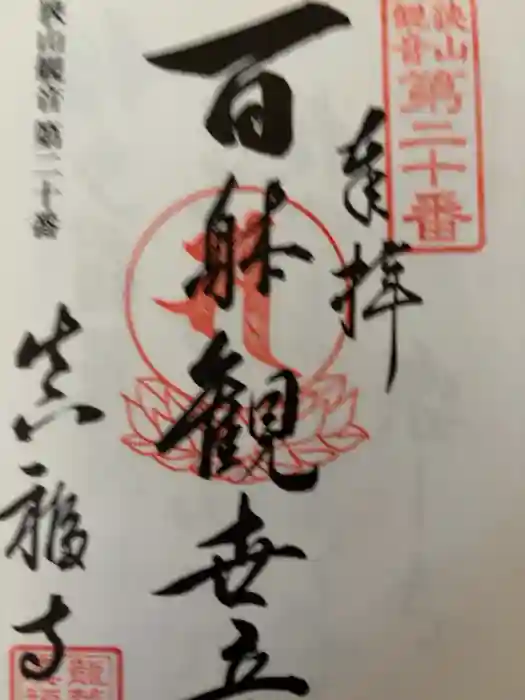 狭山
観音
第二十番
奉拝
百躰観世音
狭山観音第二十番
真福寺